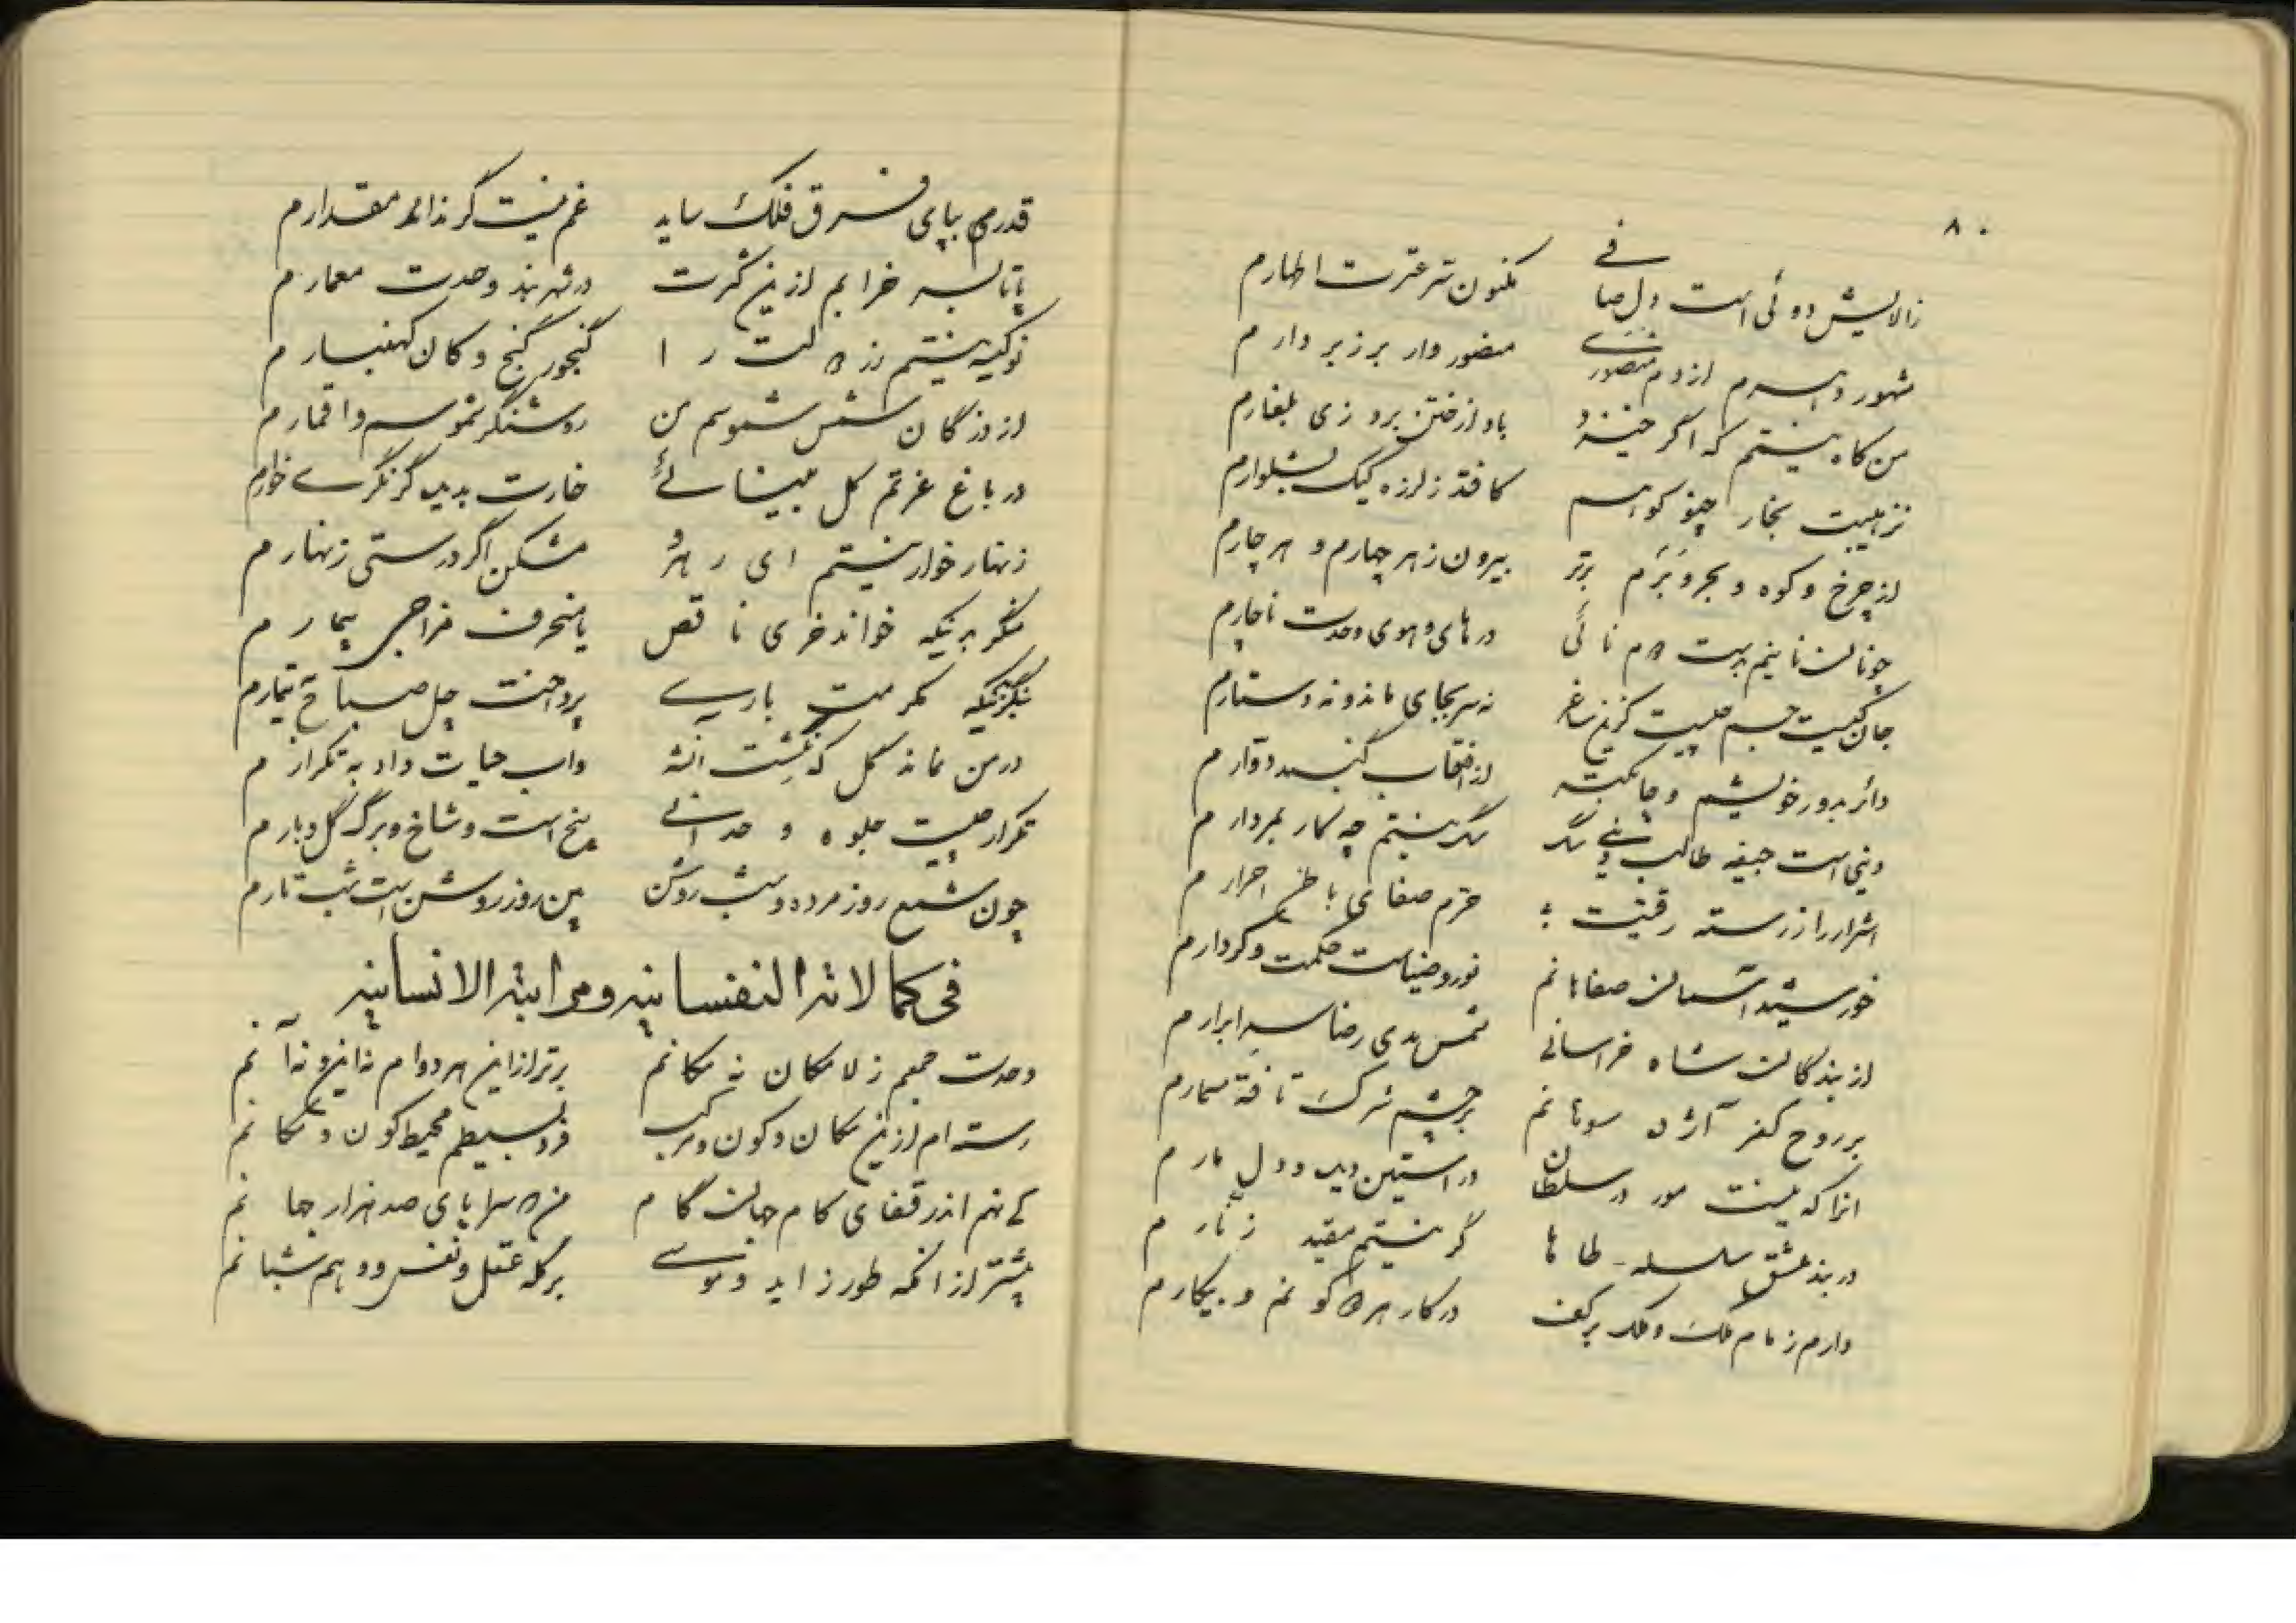 ۸۰
زالایش دوئی است دل صافی مکنون سر عترت اطهارم
مشهور و اسرم از دم منصوری منصور وار بر زبر دارم
من کاه نیستم که اگر خیزد باد از ختن برد زی بلغارم
نز هیبت بخار چنو کوهم کافتد ز لرزه کیک بشلوارم
از چرخ و کوه و بحر و برم برتر بیرون ز هر چهارم و هر چارم
چونان نایم بدست دم نائی در های و هوی وحدت ناچارم
جان کیست جسم چیست کزین ساغر نه سر بجای ماند و نه دستارم
دائر بدور خویشم و چابکتر از گنبد دوارم
دنیی است جیفه طالب دنیی سگ سگ نیستم چه کار بمردارم
اشرار را ز رسته رقیت احرارم
خورشید آسمان صفاهانم نور و ضیاست حکمت و کردارم
از بندگان شاه خراسانی شمس هدی رضا سر ابرارم
بر روح کفر آژده سوهانم بر چشم شرک تافته مسمارم
انرا که نیست مور در سلطان در آستین دید و دل مارم
در بند عشق سلسله طاها گر نیستم مقید زنارم
دارم زمام ملک و ملک بر کف در کار هر دو کونم و بیکارم
قدرم بپای فرق فلک ساید غم نیست گر نداند مقدارم
پا تا بسر خرابم ازین کثرت در شهر بند وحدت معمارم
نو کیسه نیستم زر را گنجور گنج و کان کهنبارم
از ذرگان شمس شموسم من روشنگر شموس و اقمارم
در باغ عزتم گل بینائی خارت بدیده گر نگری خوارم
زنهار خوار نیستم ای رهرو مشکن اگر درستی زنهارم
منگر بدینکه خواند خری ناقص یا منحرف مزاجی بیمارم
بنگر بدینکه مکرمت باری پرداخت چل صباح تیمارم
در من نماند گل که نگشت انشه واب حیات داد به تکرارم
تکرار چیست جلوه وحدانی بیخ است و شاخ و برگ گل و بارم
چون شمع روز مرده و شب روشن بین روز روشن است شب تارم
فی کمالاته النفسانیه و مراتبه الانسانیه
وحدت جمعم ز لامکان نه مکانم برتر ازاین هر دوام نه این و نه آنم
رسته ام ازین مکان و کون و مرکب فرد بسیطم محیط کون و مکانم
کی نهم اندر قفای کام جهان گام من سراپای صد هزار جهانم
پیشتر از آنکه طور زاید و موسی بر گله عقل و نفس و وهم شبانم